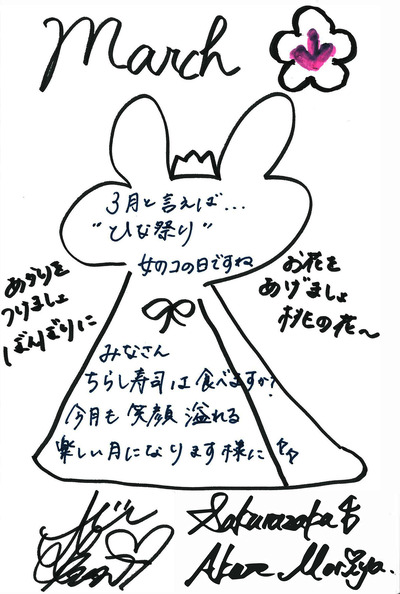 March
3月と言えば...
"ひな祭り"
女のコの日ですね
あかりを
つけましょ
ぼんぼりに
お花を
あげましょ
桃の花〜
みなさん
ちらし寿司は食べますか?
今月も笑顔溢れる
楽しい月になります様に
Sakurazaka46
Akane Moriya.